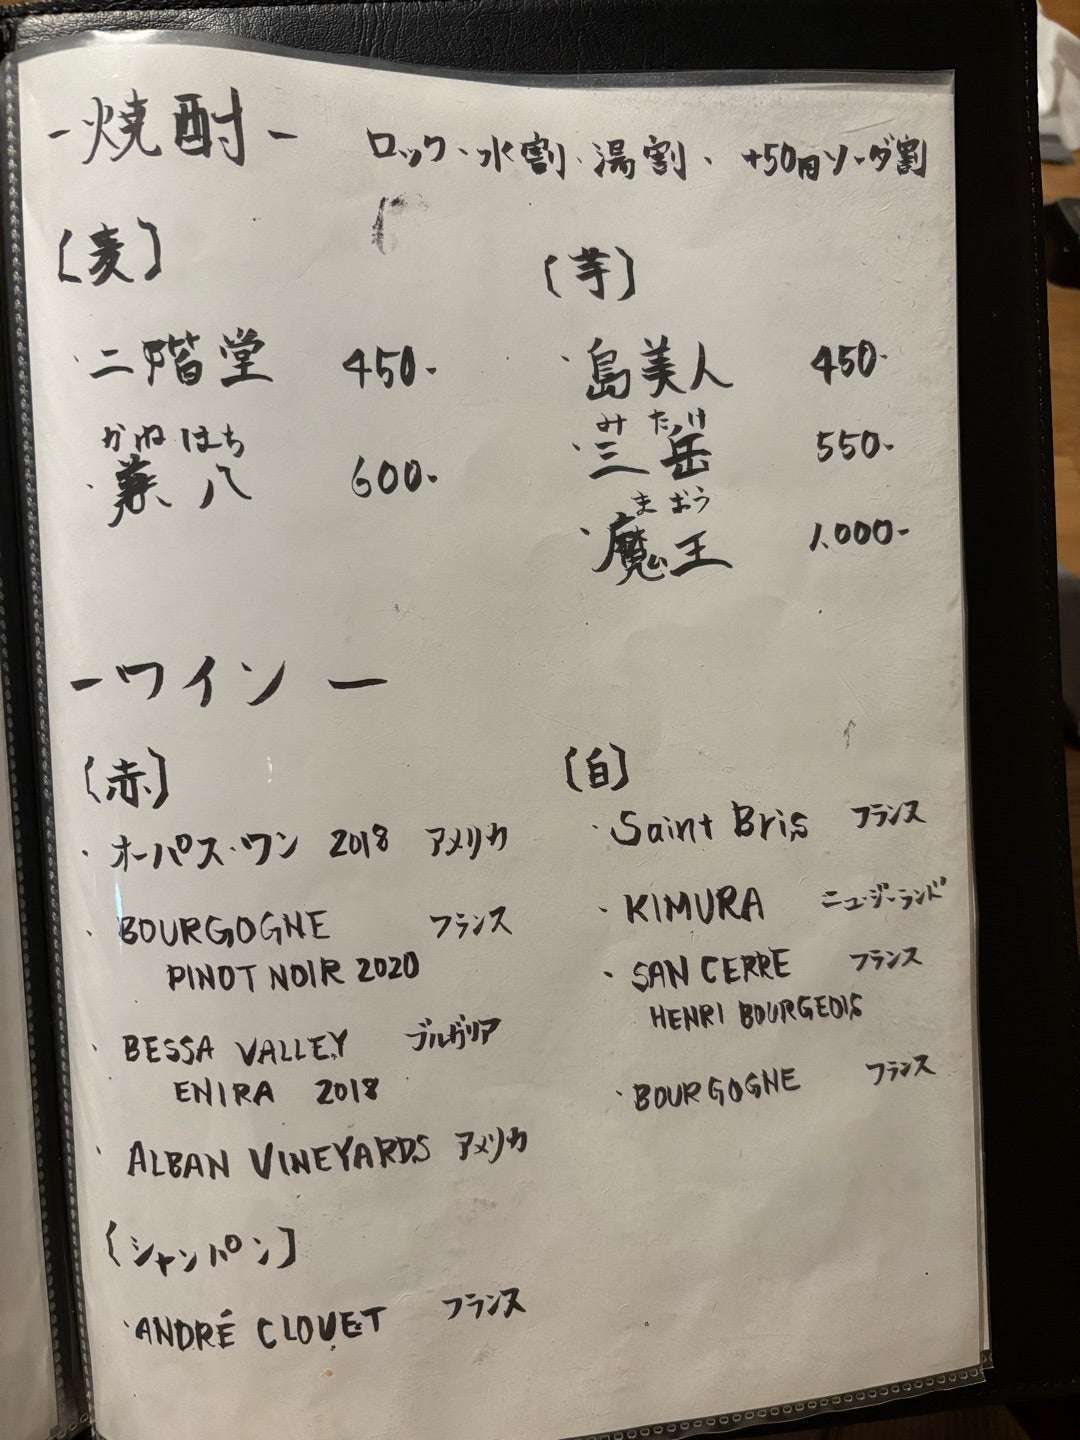 -焼酎-
ロック、水割、湯割、+50円ソーダ割
[麦]
・二階堂 450-
かねはち
・兼八 600-
[芋]
・島美人 450-
みたけ
・三岳 550-
まおう
・魔王 1,000-
-ワイン-
[赤]
・オーパス・ワン 2018 アメリカ
・BOURGOGNE フランス
PINOT NOIR 2020
・BESSA VALLEY ブルガリア
ENIRA 2018
・ALBAN VINEYARDS アメリカ
[シャンパン]
・ANDRÉ CLOUET フランス
[白]
・Saint Bris フランス
・KIMURA ニュージーランド
・SAN CERRE フランス
HENRI BOURGEOIS
・BOURGOGNE フランス